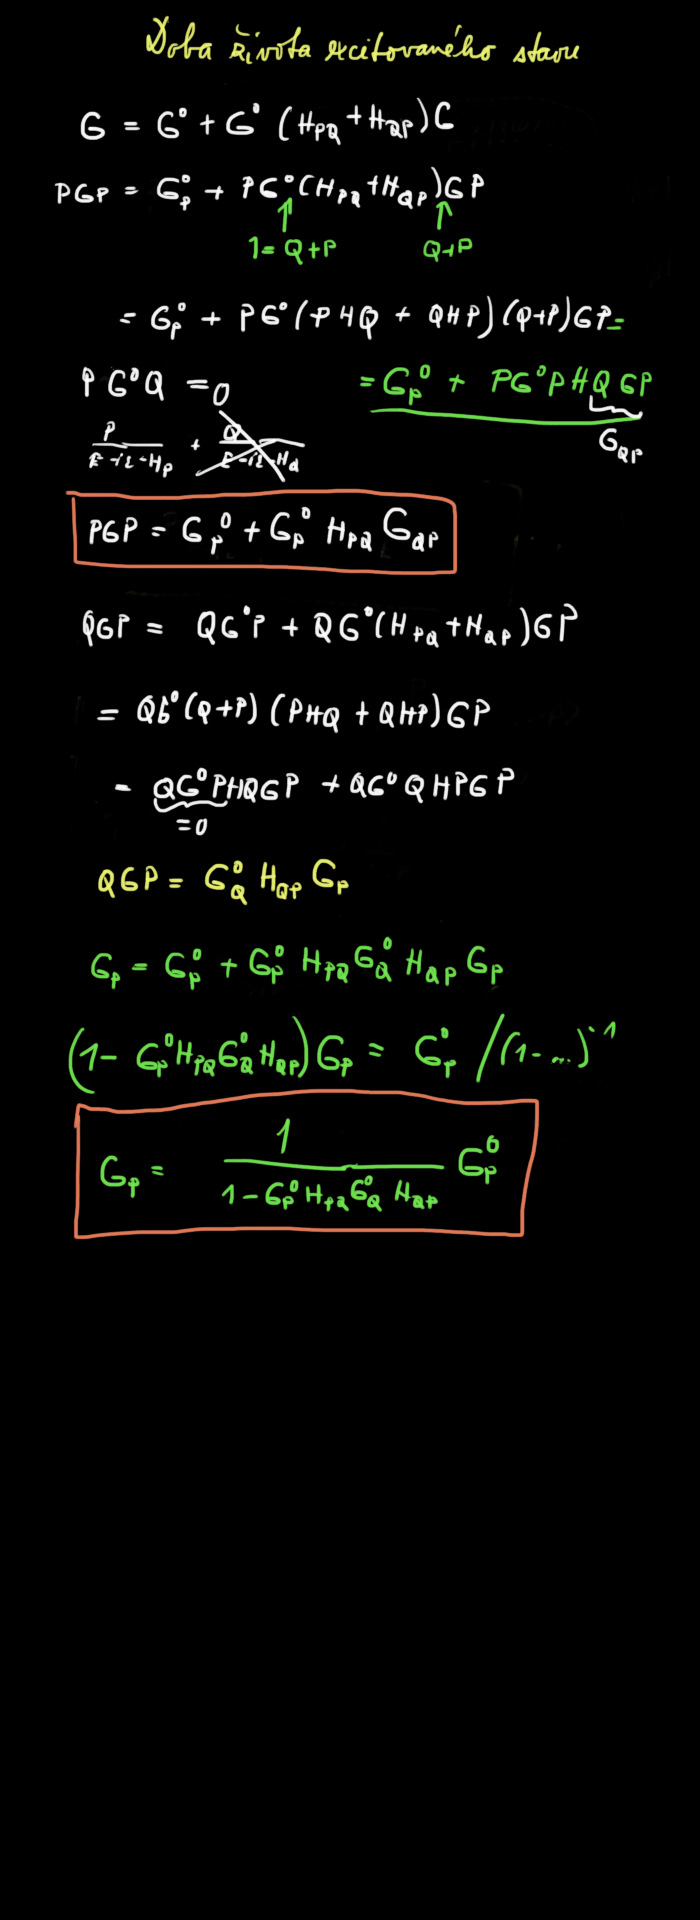 Doba života excitovaného stavu
G = G⁰ + G⁰ (H_PQ + H_QP) G
PGP = G_P⁰ + PG⁰(H_PQ + H_QP)GP
1 = Q+P Q+P
= G_P⁰ + PG⁰(PHQ + QHP)(Q+P)GP =
PG⁰Q = 0 = G_P⁰ + PG⁰PHQGP
G_QP
P/(E-iε-H_P) + Q/(E-iε-H_Q)
PGP = G_P⁰ + G_P⁰ H_PQ G_QP
QGP = QG⁰P + QG⁰(H_PQ + H_QP)GP
= QG⁰(Q+P)(PHQ + QHP)GP
= QG⁰PHQGP + QG⁰QHPGP
=0
QGP = G_Q⁰ H_QP G_P
G_P = G_P⁰ + G_P⁰ H_PQ G_Q⁰ H_QP G_P
(1 - G_P⁰ H_PQ G_Q⁰ H_QP) G_P = G_P⁰ /(1-...)⁻¹
G_P = 1/(1 - G_P⁰ H_PQ G_Q⁰ H_QP) G_P⁰